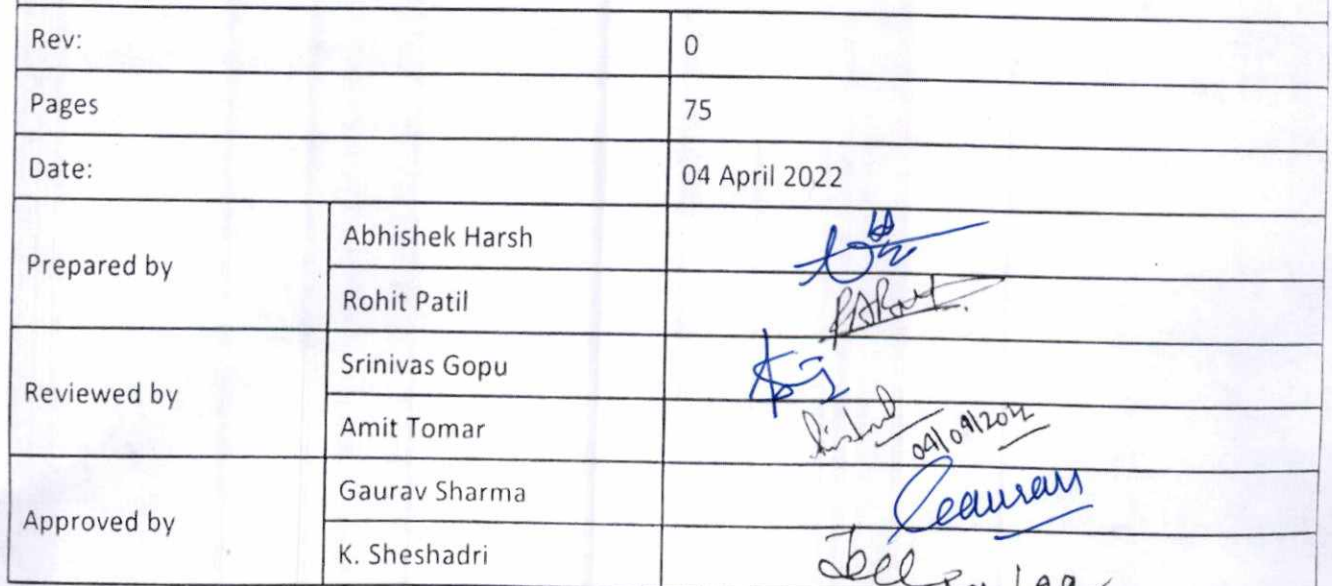 Rev: 0
Pages 75
Date: 04 April 2022
Prepared by
Abhishek Harsh
Rohit Patil
Reviewed by
Srinivas Gopu
Amit Tomar
Approved by
Gaurav Sharma
Gaurav
K. Sheshadri